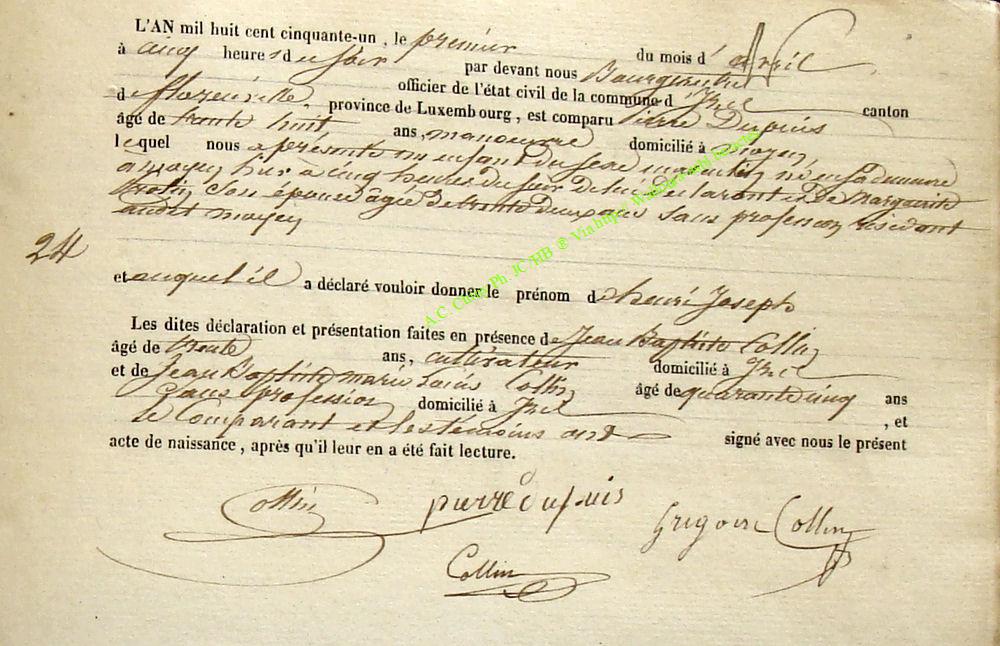 L'AN mil huit cent cinquante-un, le premier du mois d'avril
à cinq heures du soir par devant nous Bourgmestre
officier de l'état civil de la commune d'Izel canton
de florenville, province de Luxembourg, est comparu Pierre Dupuis
âgé de trente huit ans, manoeuvre domicilié à moyen
lequel nous a présenté un enfant du sexe masculin, né en sa demeure
à moyen hier à cinq heures du soir de lui déclarant et de Marguerite
son épouse âgée de trente deux ans sans profession résidant
audit moyen
24
et auquel il a déclaré vouloir donner le prénom de henri Joseph
Les dites déclaration et présentation faites en présence de Jean Baptiste Collin
âgé de trente ans, cultivateur domicilié à Izel
et de Jean Baptiste marie Collin âgé de quarante cinq ans
sans profession domicilié à Izel, et
le comparant et les témoins ont signé avec nous le présent
acte de naissance, après qu'il leur en a été fait lecture.
Collin pierre dupuis
Grigoire Collin
Collin